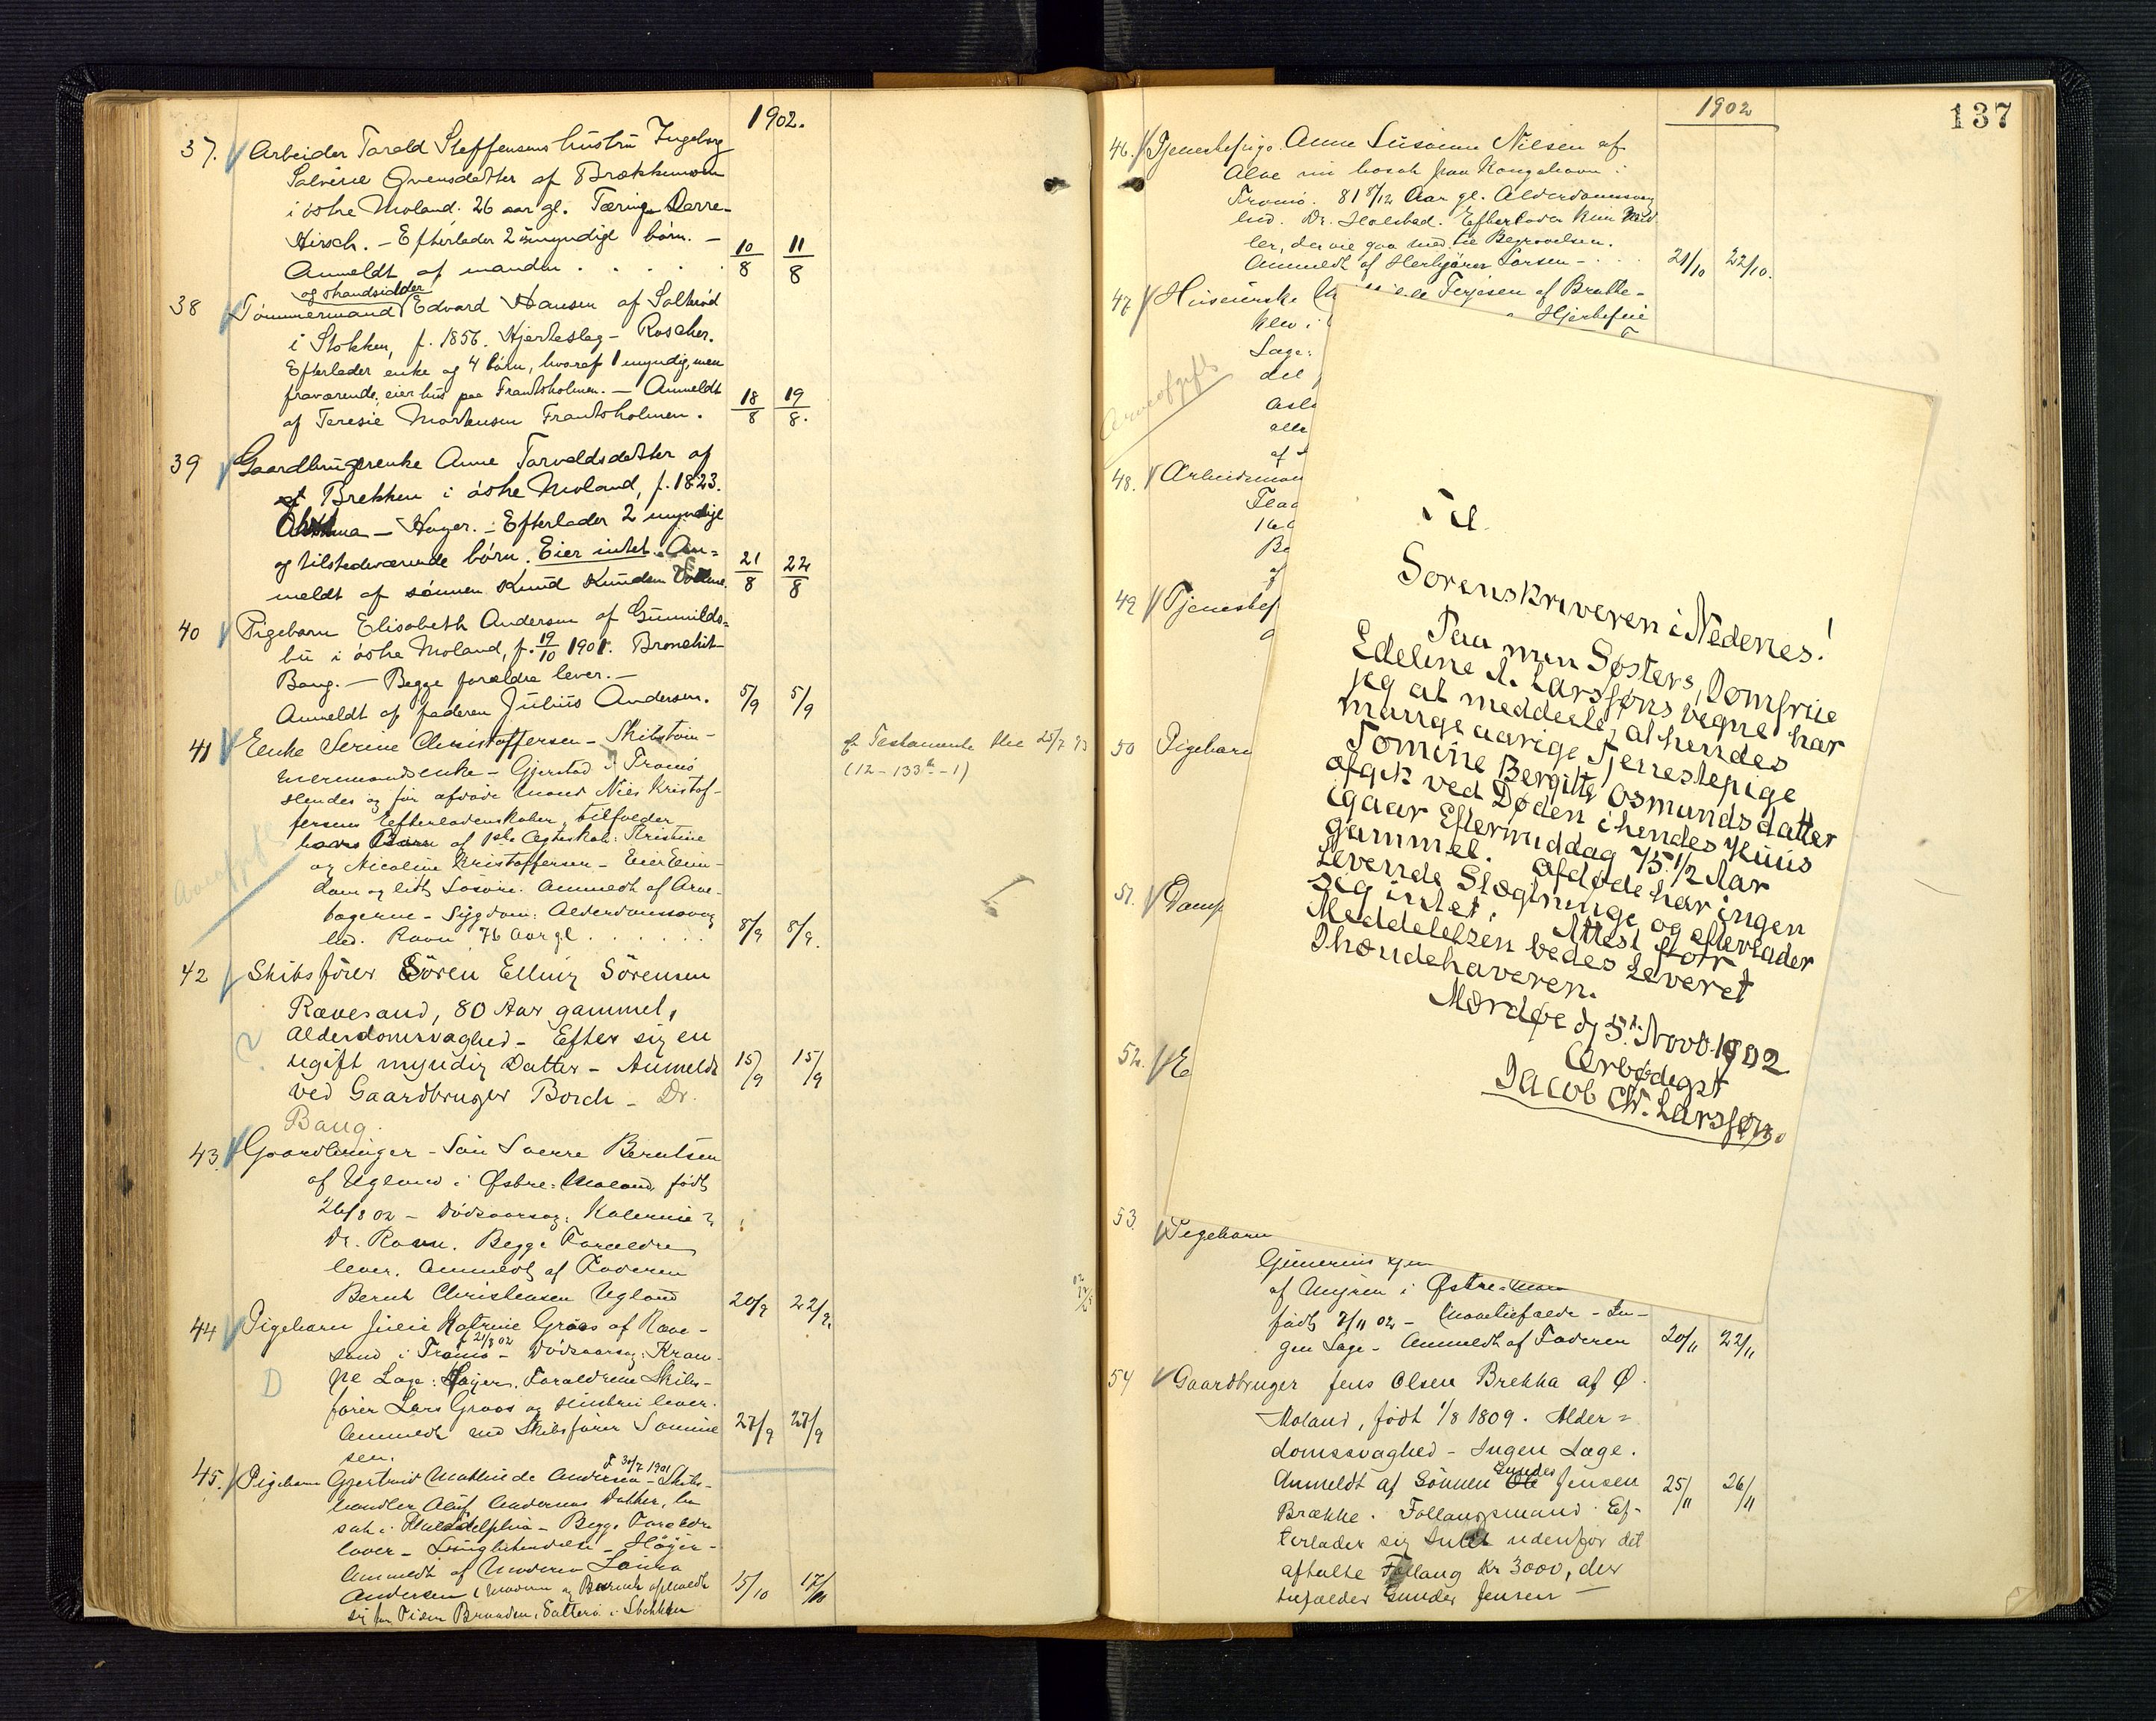 1902.
37. Arbeider Tarald Steffensens hustru Ingeborg
Salvine Qvensdatter af Brækkemoen
i östre Moland. 26 aar gl. Tæring. Darre-
Hirsch. - Efterlader 2 umyndige börn. -
Anmeldt af manden . . . . . 10/8 11/8
og strandsidder
38 Tömmermand Edvard Hansen af Salterød
i Stokken, f. 1856. Hjerteslag - Roscher.
Efterlader enke og 4 börn, hvoraf 1 myndig, men
fraværende, eier hus paa Frantsholmen. - Anmeldt
af Teresie Markussen Frantsholmen. 18/8 19/8.
39 Gaardbrugerenke Anne Tarvaldsdatter af
Brekken i östre Moland, f. 1823.
Asthma - Høyer. - Efterlader 2 myndige
og tilstedeværende börn. Eier intet. An=
meldt af sönnen Knud Knudsen 21/8 22/8
40 Pigebarn Elisabeth Andersen af Gunnilds=
bu i östre Moland, f. 19/10 1901. Bronchit-
Bang. - Begge forældre lever. -
Anmeldt af faderen Julius Andersen. 5/9 5/9
41 Enke Serine Christoffersen - Skibstöm-
mermandsenke - Gjerstad i Tromö
Hendes og før afdøde Mand Niels Kristof-
fersens Efterladenskaber tilfalder
hans Børn af 1ste Ægteskab: Kristine
og Nicoline Kristoffersen - Eier Eien-
dom og lidt Løsøre. Anmeldt af Arve-
tagerne - Sygdom: Alderdomssvag
hed. Ravn 76 Aar gl. . . . . . 8/9 8/9.
Arveafgift
Testamente 25/7 93
(12 - 133 - 1)
42 Skibsförer Sören Elling Sörensen
Ravesand, 80 Aar gammel,
Alderdomsvaghed - Efter sig en
ugift myndig Datter - Anmeldt 15/9 15/9
ved Gaardbruger Borch - Dr.
Bang.
43. Gaardbruger - Søn Sverre Berntsen
af Ugland i Østre-Moland født
26/8 02 - Dødsaarsag: Kolerine?
Dr. Ravn. Begge Forældre
lever. Anmeldt af Faderen
Bernt Christensen Ugland 20/9 22/9.
44 Pigebarn Julie Katrine Groos af Rave-
f 21/8 02
sand i Tromö - Dødsaarsag: Kram-
pe Læge: Høyer. Forældrene Skibs-
fører Lars Groos og Hustru lever.
Anmeldt ved Skibsfører 27/9 27/9
sen.
D
f 30/7 1901
45. Pigebarn Gjertrud Mathilde Andersen - Skibs-
handler Oluf Andersens Datter, bo
sat i Philadelphia - Begge Forældre
lever - Lungebetændelse - Höyer -
Anmeldt af Moderen Lovisa
Andersen (Moderen og Barnet opholdt
sig 15/10 17/10
1902
137
46. Tjenestepige Anne Susanne Nilsen af
Alve nu bosat paa Kongshavn i
Tromö. 81 8/12 Aar gl. Alderdomssvag
hed. Dr. Holstad. Efterlader kun Mid
ler, der vil gaa med til Begravelsen.
Anmeldt af Larsen - . . . 21/10 22/10.
47. Huseierske Terjesen af Bratte-
klev i Hjertefeil
Læge:
del
alle
af
Arveafgift
48. Arbeidsmand
49 Tjenestepi
50 Pigebarn
51. Damp
52. E
Til
Sorenskriveren i Nedenes!
Paa min Søsters, Domfrue
Edeline A. Larssøns vegne har
jeg at meddeele, at hendes
mangeaarige Tjenestepige
Tomine Bergitte Osmundsdatter
afgik ved Døden i hendes Huus
igaar Eftermiddag 75 1/2 Aar
gammel. Afdøde har ingen
Levende Slægtninge og efterlader
sig intet. Attest for
Meddelelsen bedes Leveret
Ihændehaveren.
Merdøe d. 5te Novb. 1902
Ærbødigst
Jacob Chr. Larssøn.
53. Pigebarn
Gunerius
af Myren i Østre-Mo
født 7/11 02 - - In-
gen Læge - Anmeldt af Faderen 20/11 22/11
54 Gaardbruger Jens Olsen Brekka af Ø.
Moland, född 1/8 1809. Alder=
domssvaghed - Ingen Læge.
Gundes
Anmeldt af Sönnen Ole Jensen 25/11 26/11
Brække. Follaugsmand. Ef-
terlader sig Intet udenfor det
aftalte Follaug Kr 3000, der
tilfalder Gunder Jensen -